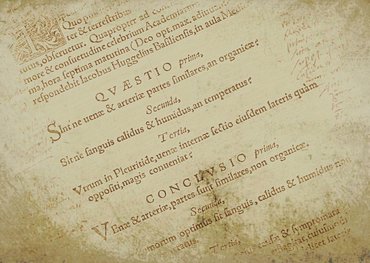 Quo pos
ter & terrestribus
obstruetur. Quapropter ad con
more & consuetudine celebrium Academiarum
ma, hora septima matutina (Deo opt. max. adiuu
respondebit Iacobus Huggelius Basiliensis, in aula Medic
QVÆSTIO prima,
Sint ne uenæ & arteriæ partes similares, an organicæ?
Secunda,
Sit ne sanguis calidus & humidus, an temperatus?
Tertia,
Vtrum in Pleuritide, uenæ internæ sectio eiusdem lateris quàm
oppositi, magis conueniat?
CONCLVSIO prima,
Venæ & arteriæ, partes sunt similares, non organicæ.
Secunda,
morum optimus sit sanguis, calidus & humidus
Tertia,
causa & symptomata